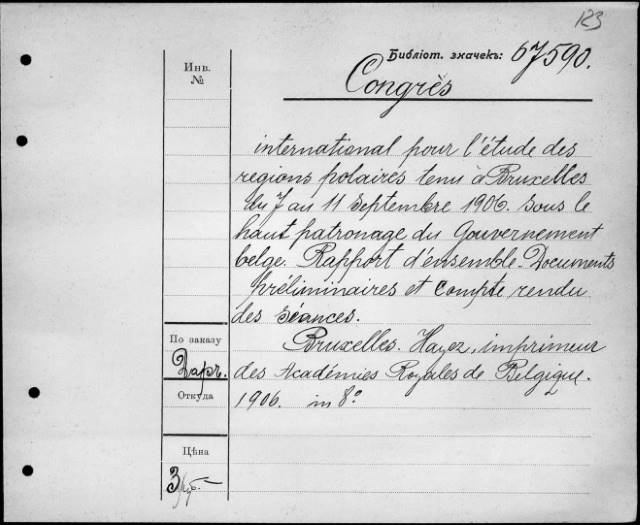 123
Инв.
№
Библіот. значекъ: 67590.
Congrès
international pour l'étude des
regions polaires tenu à Bruxelles
du 7 au 11 Septembre 1906. sous le
haut patronage du Gouvernement
belge. Rapport d'ensemble. Documents
préliminaires et compte rendu
des séances.
Bruxelles. Hayez, imprimeur
des Académies Royales de Belgique.
1906. in 8º
По заказу
Даръ.
Откуда
Цѣна
3 руб. —